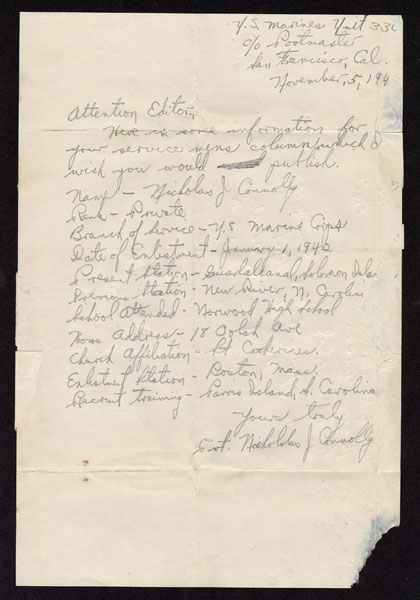 U.S. Marines Unit 33
c/o Postmaster
San Francisco, Cal.
November, 5, 194
Attention Editor,
Here is some information for
your service mens column which I
wish you would publish.
Name - Nicholas J Connolly
Rank - Private
Branch of Service - U.S. Marine Corps
Date of Enlistment - January 1, 1942
Present Station - Guadalcanal, Solomon Isls
Previous Station - New River, N. Carolina
School Attended - Norwood High School
Home Address - 18 Ave
Church Affiliation - St Catherines.
Enlistment Station - Boston, Mass.
Recruit training - Parris Island, S. Carolina
Yours truly
Pvt. Nicholas J Connolly